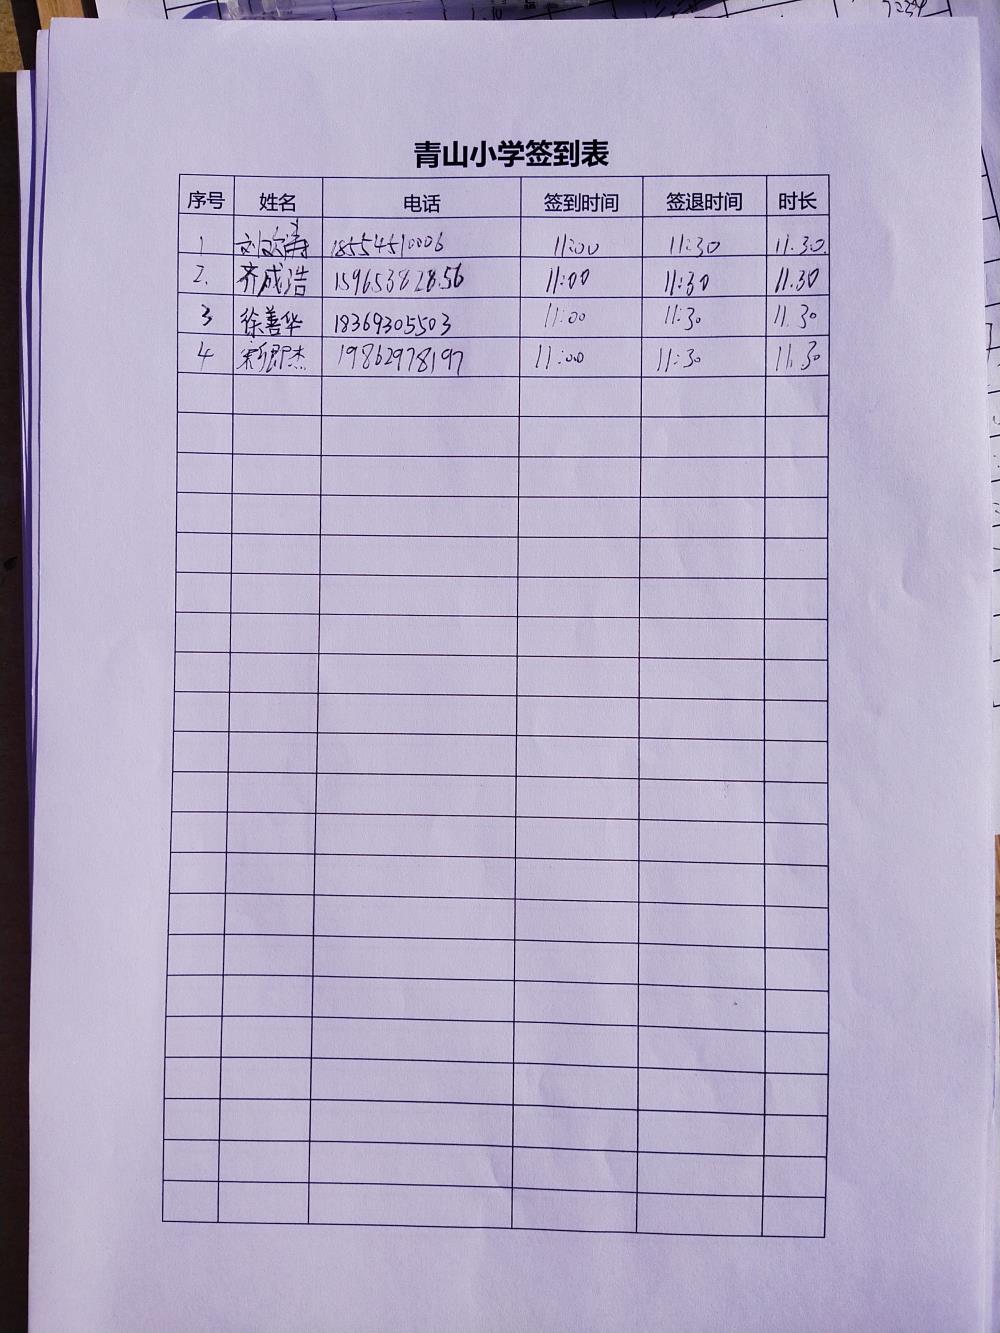 青山小学签到表
序号 姓名 电话 签到时间 签退时间 时长
1 刘欢涛 18554510006 11:00 11:30 11:30.
2. 齐成浩 15965382856 11:00 11:30 11.30
3 徐善华 18369305503 11:00 11:30 11.30
4 杰 19862978197 11:00 11:30 11.30